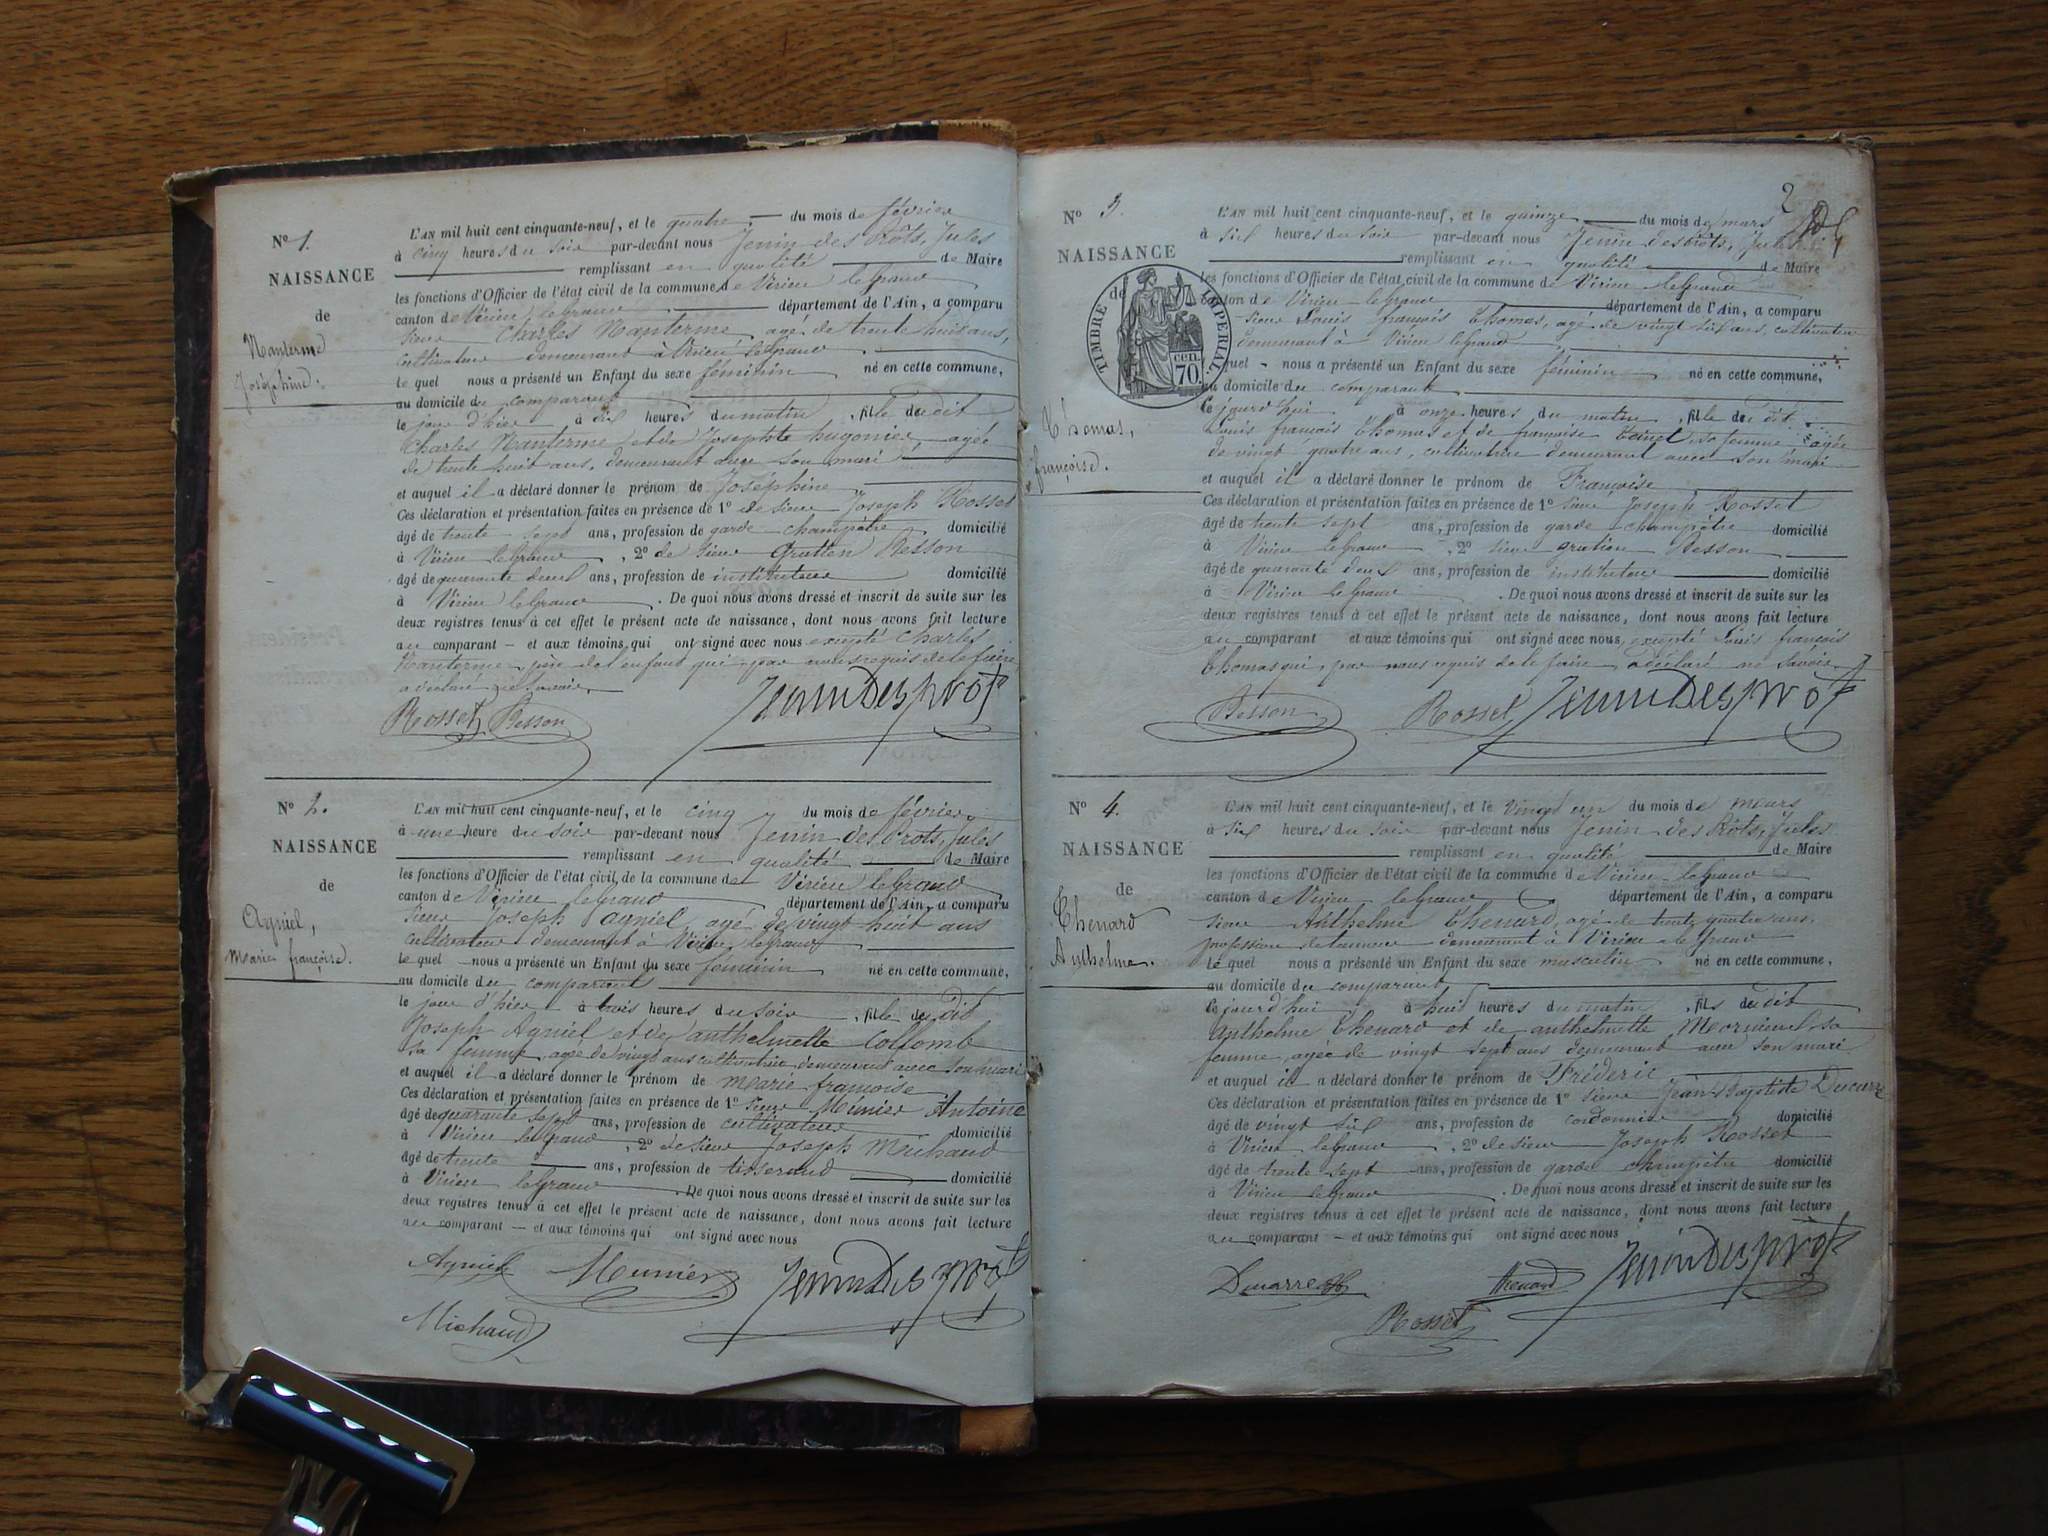 N° 1.
NAISSANCE
de
Nanterme
Joséphine.
L'AN mil huit cent cinquante-neuf, et le quatre du mois de février
à cinq heures du soir par-devant nous Jenin des Prôts, Jules
remplissant en qualité de Maire
les fonctions d'Officier de l'état civil de la commune de Virieu leGrand
canton de Virieu leGrand département de l'Ain, a comparu
sieur Charles Nanterme, agé de trente huit ans,
cultivateur demeurant à Virieu leGrand
le quel nous a présenté un Enfant du sexe féminin né en cette commune,
au domicile du comparant
le jour d'hier à six heures du matin, fille du dit
Charles Nanterme et de Josephte hugonier agée
de trente huit ans, demeurant avec son mari
et auquel il a déclaré donner le prénom de Josephine
Ces déclaration et présentation faites en présence de 1° de sieur Joseph Rosset
âgé de trente sept ans, profession de garde champêtre domicilié
à Virieu leGrand, 2° de sieur Gratien Besson
âgé de quarante deux ans, profession de instituteur domicilié
à Virieu leGrand. De quoi nous avons dressé et inscrit de suite sur les
deux registres tenus à cet effet le présent acte de naissance, dont nous avons fait lecture
au comparant et aux témoins qui ont signé avec nous excepté Charles
Nanterme, père de l'enfant qui, par nous requis de le faire
a déclaré ne savoir.
Rosset Besson JeninDesprôts
N° 2.
NAISSANCE
de
Agniel,
Marie françoise.
L'AN mil huit cent cinquante-neuf, et le cinq du mois de février
à une heure du soir par-devant nous Jenin des Prôts, Jules
remplissant en qualité de Maire
les fonctions d'Officier de l'état civil de la commune de Virieu leGrand
canton de Virieu leGrand département de l'Ain, a comparu
sieur Joseph Agniel agé de vingt huit ans
cultivateur demeurant à Virieu leGrand
le quel nous a présenté un Enfant du sexe féminin né en cette commune,
au domicile du comparant
le jour d'hier à trois heures du soir, fille du dit
Joseph Agniel et de anthelmette Collomb
sa femme, agée de vingt ans cultivatrice demeurant avec son mari
et auquel il a déclaré donner le prénom de Marie françoise
Ces déclaration et présentation faites en présence de 1° sieur Meunier Antoine
âgé de quarante sept ans, profession de cultivateur domicilié
à Virieu leGrand, 2° de sieur Joseph Michaud
âgé de trente ans, profession de tisserand domicilié
à Virieu leGrand. De quoi nous avons dressé et inscrit de suite sur les
deux registres tenus à cet effet le présent acte de naissance, dont nous avons fait lecture
au comparant et aux témoins qui ont signé avec nous
Agniel Meunier JeninDesprôts
Michaud
2
N° 3.
NAISSANCE
de
TIMBRE IMPERIAL.
70. cen.
Thomas,
françoise.
L'AN mil huit cent cinquante-neuf, et le quinze du mois de mars
à six heures du soir par-devant nous Jenin des Prôts, Jules
remplissant en qualité de Maire
les fonctions d'Officier de l'état civil de la commune de Virieu leGrand
canton de Virieu leGrand département de l'Ain, a comparu
sieur Louis françois Thomas, agé de vingt six ans, cultivateur
demeurant à Virieu leGrand
lequel nous a présenté un Enfant du sexe féminin né en cette commune,
au domicile du comparant
Ce jourd'hui à onze heures du matin, fille du dit
Louis françois Thomas et de françoise sa femme agée
de vingt quatre ans, cultivatrice demeurant avec son mari
et auquel il a déclaré donner le prénom de Françoise
Ces déclaration et présentation faites en présence de 1° sieur Joseph Rosset
âgé de trente sept ans, profession de garde champêtre domicilié
à Virieu leGrand, 2° sieur gratien Besson
âgé de quarante deux ans, profession de instituteur domicilié
à Virieu leGrand. De quoi nous avons dressé et inscrit de suite sur les
deux registres tenus à cet effet le présent acte de naissance, dont nous avons fait lecture
au comparant et aux témoins qui ont signé avec nous, excepté Louis françois
Thomas qui, par nous requis de le faire a déclaré ne savoir.
Besson Rosset JeninDesprôts
N° 4.
NAISSANCE
de
Thenard
Anthelme.
L'AN mil huit cent cinquante-neuf, et le vingt un du mois de mars
à six heures du soir par-devant nous Jenin des Prôts, Jules
remplissant en qualité de Maire
les fonctions d'Officier de l'état civil de la commune de Virieu leGrand
canton de Virieu leGrand département de l'Ain, a comparu
sieur Anthelme Thenard, agé de trente quatre ans,
profession de tanneur demeurant à Virieu le Grand
le quel nous a présenté un Enfant du sexe masculin né en cette commune,
au domicile du comparant
Ce jourd'hui à huit heures du matin, fils du dit
Anthelme Thenard et de anthelmette sa
femme, agée de vingt sept ans demeurant avec son mari
et auquel il a déclaré donner le prénom de Fréderic
Ces déclaration et présentation faites en présence de 1° sieur Jean-Baptiste Ducarre
âgé de vingt six ans, profession de cordonnier domicilié
à Virieu leGrand, 2° de sieur Joseph Rosset
âgé de trente sept ans, profession de garde champêtre domicilié
à Virieu leGrand. De quoi nous avons dressé et inscrit de suite sur les
deux registres tenus à cet effet le présent acte de naissance, dont nous avons fait lecture
au comparant et aux témoins qui ont signé avec nous
Ducarre Thenard JeninDesprôts
Rosset